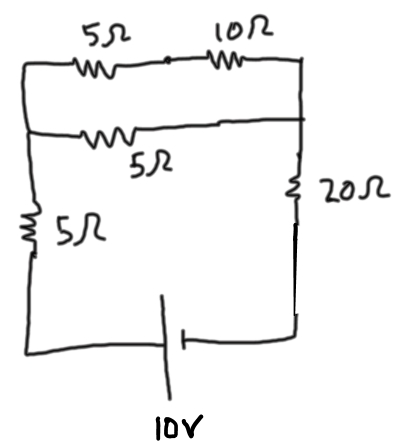 5Ω 10Ω
5Ω
20Ω
5Ω
10V